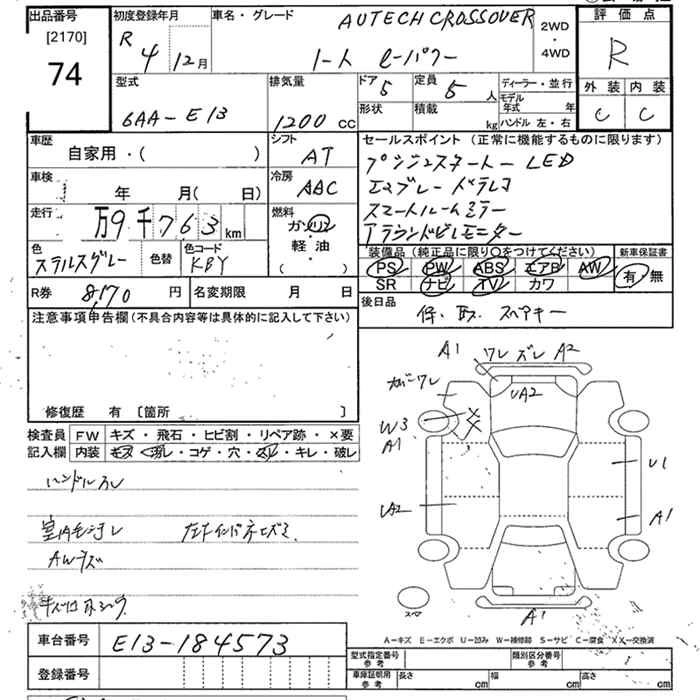 出品番号
[2170]
74
初度登録年月
R 4 12月
車名・グレード
AUTECH CROSSOVER
ノート e-パワー
2WD
・
4WD
評価点
R
外装 内装
C C
型式
6AA-E13
排気量
1200 cc
ドア 5
定員 5 人
形状
積載 kg
ディーラー・並行
モデル年式 年
ハンドル 左・右
車歴
自家用・( )
シフト
AT
車検
年 月( 日)
冷房
AAC
走行
万9千763km
燃料
ガソリン
軽・油
( )
色
ステルスグレー
色替
色コード
KBY
R券 8,170 円
名変期限 月 日
セールスポイント(正常に機能するものに限ります)
プッシュスタート LED
エマブレー ドラレコ
スマートルームミラー
アラウンドビューモニター
装備品(純正品に限り〇をつけてください)
PS PW ABS エアB AW
SR ナビ TV カワ
新車保証書
有 無
後日品
保.取. スペアキー
注意事項申告欄(不具合内容等は具体的に記入して下さい)
修復歴 有 [箇所 ]
検査員記入欄
FW キズ・飛石・ヒビ割・リペア跡・×要
内装 キズ・汚れ・コゲ・穴・スレ・キレ・破レ
ハンドルスレ
AWキズ
A1 ワレ ズレ A2
UA2
カバーワレ
W3
A1
XX
UA2
U1
A1
A1
スペア
A−キズ E−エクボ U−凹み W−補修跡 S−サビ C−腐食 XX−交換済
車台番号
E13-184573
登録番号
型式指定番号
参考
類別区分番号
参考
車庫証明用
参考
長さ cm 幅 cm 高さ cm